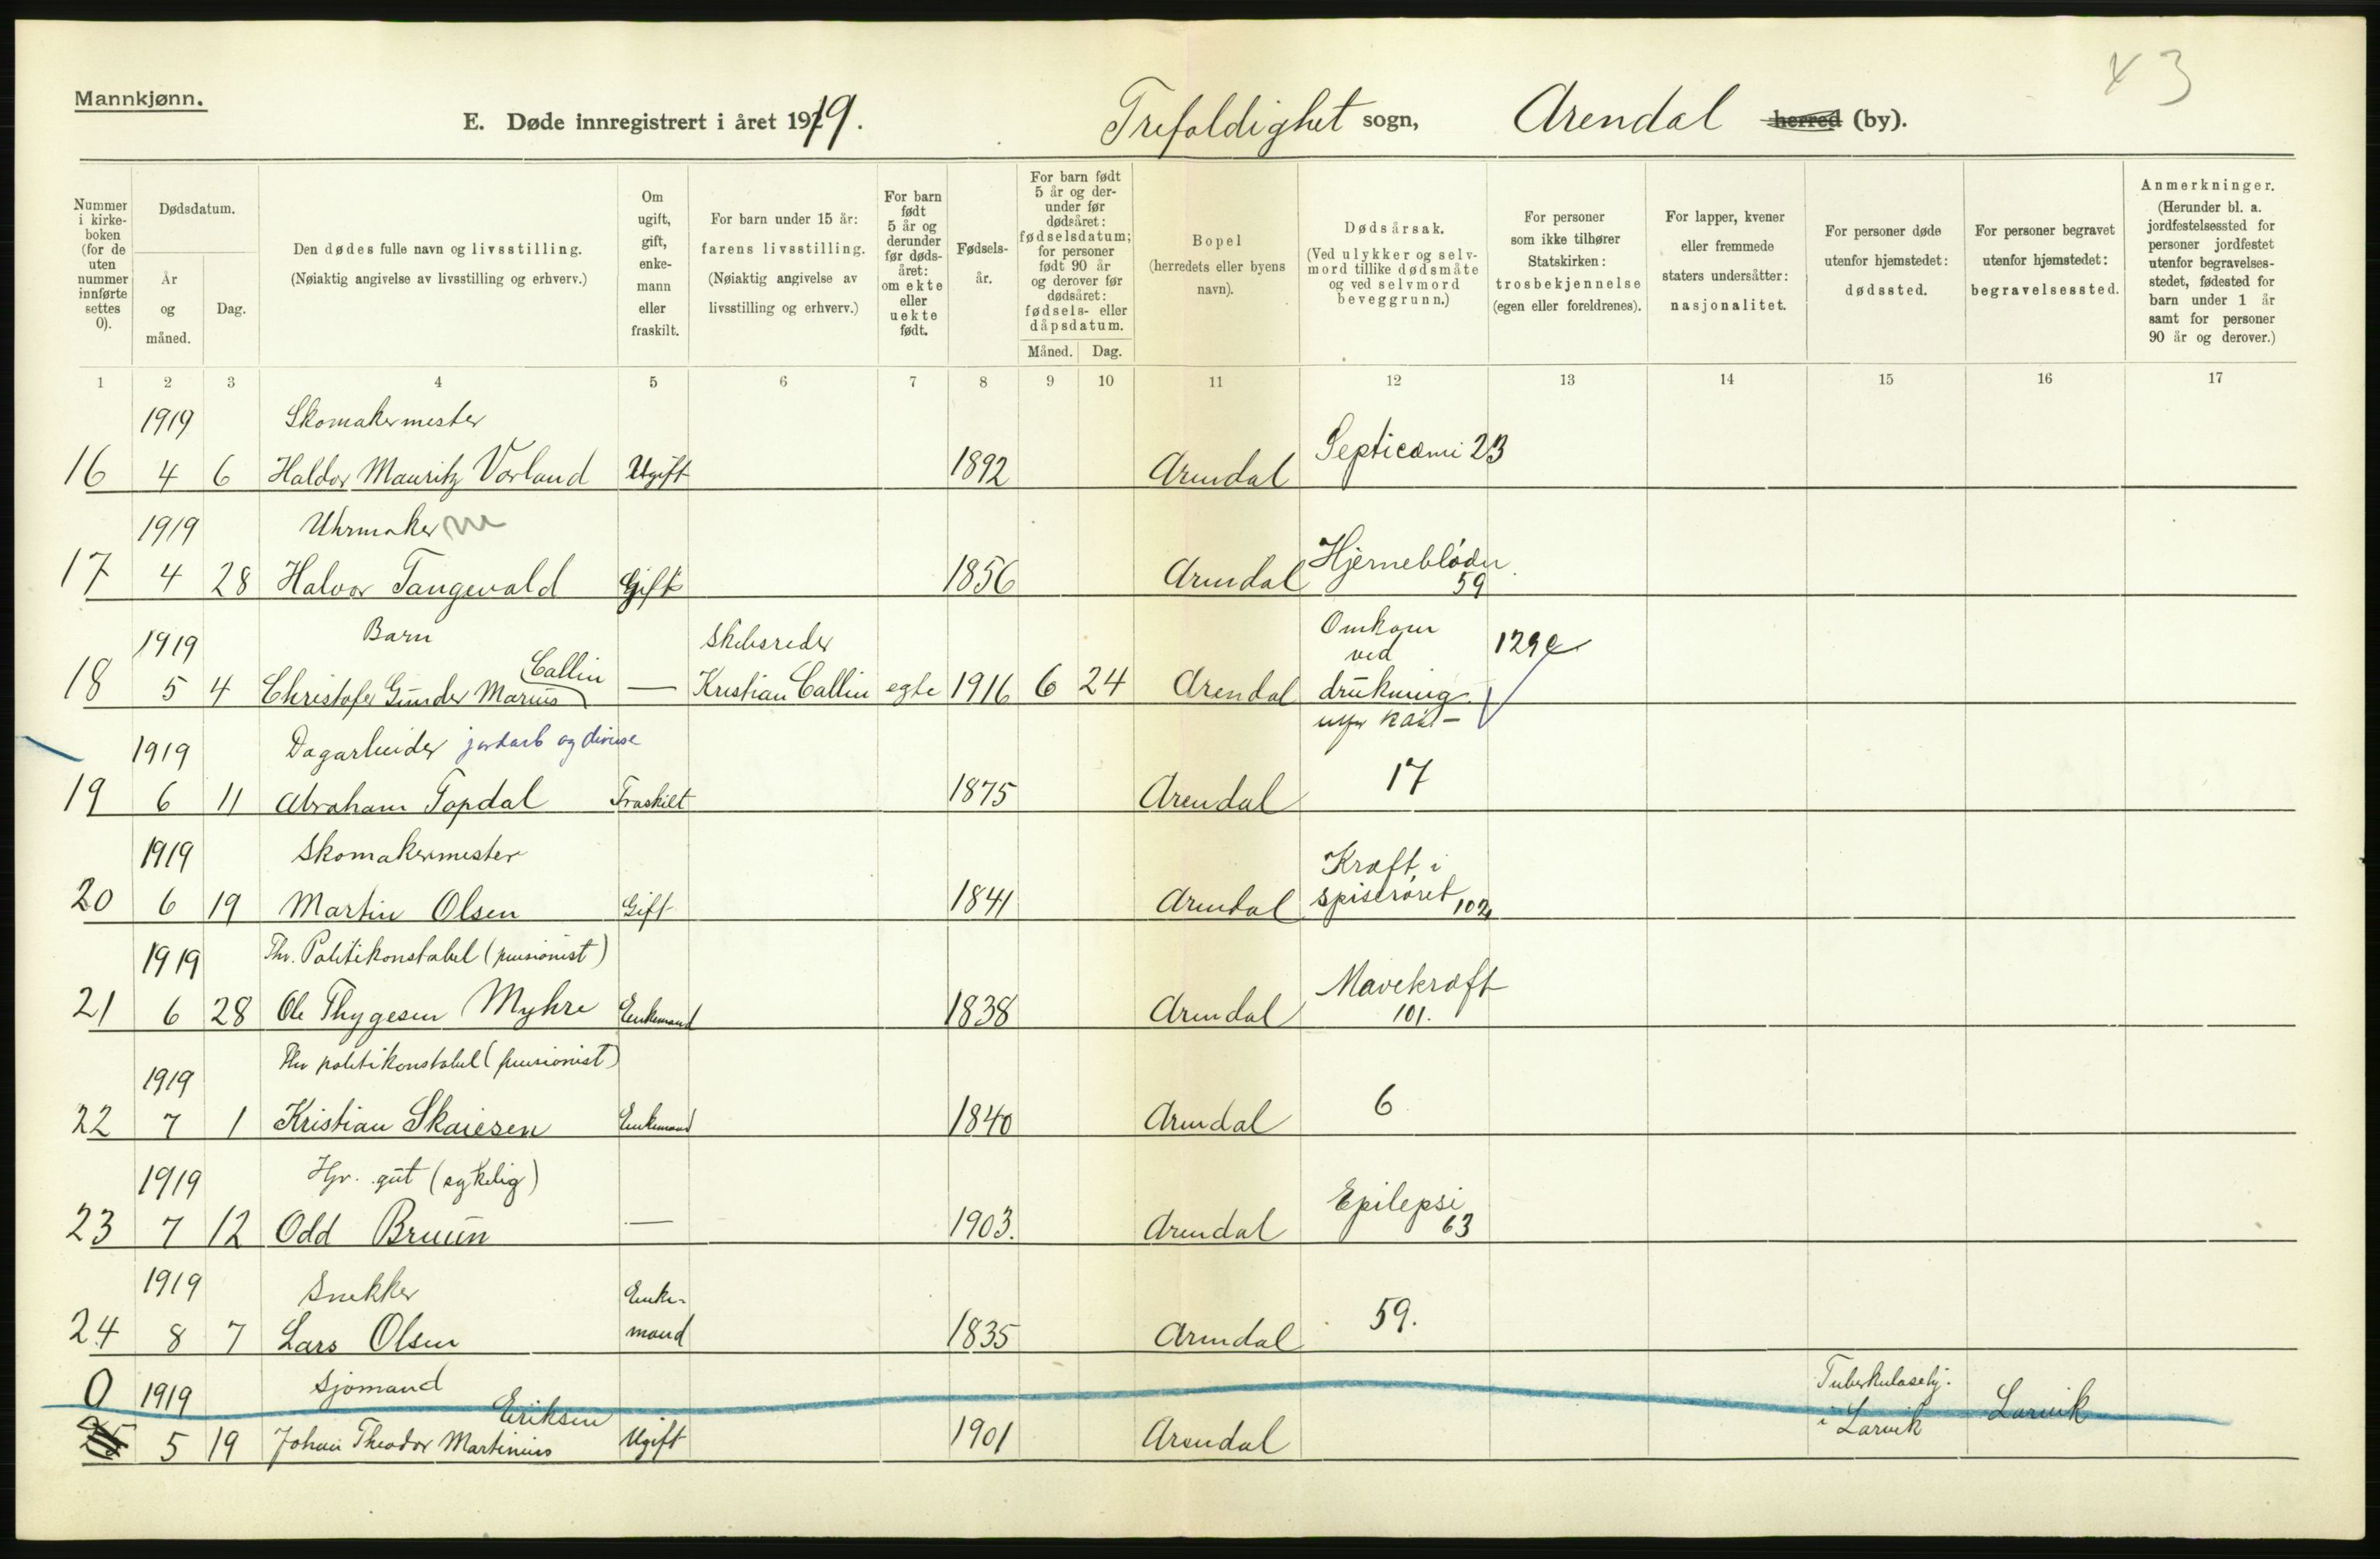 43
Mannkjønn.
E. Døde innregistrert i året 1919. Trefoldighet sogn, Arendal herred (by).
Nummer i kirkeboken (for de uten nummer innførte settes 0).
Dødsdatum.
År og måned.
Dag.
Den dødes fulle navn og livsstilling.
(Nøiaktig angivelse av livsstilling og erhverv.)
Om ugift, gift, enkemann eller fraskilt.
For barn under 15 år: farens livsstilling.
(Nøiaktig angivelse av livsstilling og erhverv.)
For barn født 5 år og derunder før dødsåret: om ekte eller uekte født.
Fødselsår.
For barn født 5 år og derunder før dødsåret: fødselsdatum; for personer født 90 år og derover før dødsåret: fødsels- eller dåpsdatum.
Måned. Dag.
Bopel (herredets eller byens navn).
Dødsårsak.
(Ved ulykker og selvmord tillike dødsmåte og ved selvmord beveggrunn.)
For personer som ikke tilhører Statskirken: trosbekjennelse (egen eller foreldrenes).
For lapper, kvener eller fremmede staters undersåtter: nasjonalitet.
For personer døde utenfor hjemstedet: dødssted.
For personer begravet utenfor hjemstedet: begravelsessted.
Anmerkninger.
(Herunder bl. a. jordfestelsessted for personer jordfestet utenfor begravelsesstedet, fødested for barn under 1 år samt for personer 90 år og derover.)
1 2 3 4 5 6 7 8 9 10 11 12 13 14 15 16 17
1919 Skomakermester
16 4 6 Haldor Mauritz Vorland Ugift 1892 Arendal Septicæmi 23
1919 Uhrmaker
17 4 28 Halvor Tangevald Gift 1856 Arendal Hjerneblødn. 59
1919 Barn Skibsreder Omkom ved 129e
18 5 4 Christofer Gunder Marius Callin — Kristian Callin egte 1916 6 24 Arendal drukning
1919 Dagarbeider jordarb og diverse
19 6 11 Abraham Topdal Fraskilt 1875 Arendal 17
1919 Skomakermester Kræft i
20 6 19 Martin Olsen Gift 1841 Arendal spiserøret 102
1919 Fhv. Politikonstabel (pensionist)
21 6 28 Ole Thygesen Myhre Enkemand 1838 Arendal Mavekræft 101.
1919 Fhv politikonstabel (pensionist)
22 7 1 Kristian Skaiesen Enkemand 1840 Arendal 6
1919 Hjv. gut (sykelig)
23 7 12 Odd Bruun — 1903. Arendal Epilepsi 63
1919 Snekker Enke-
24 8 7 Lars Olsen mand 1835 Arendal 59.
0 1919 Sjømand Tuberkulosehj.
25 5 19 Johan Theodor Martinius Eriksen Ugift 1901 Arendal i Larvik Larvik